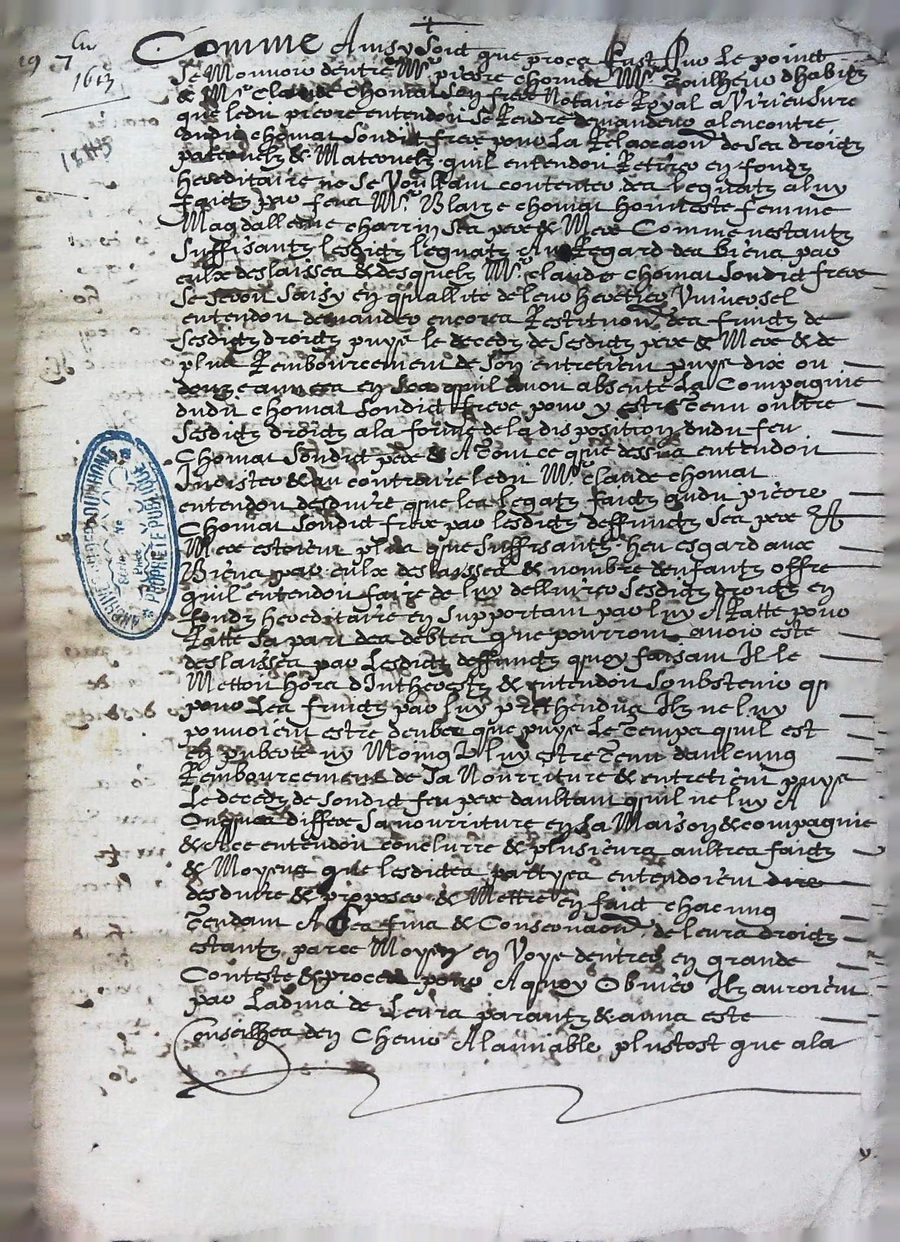 Comme Ainsy Soit que proces fust sur le point
de Mouvoir dentre Mre pierre chomat
& Mre Claude Chomat son frere Notaire Royal a Virieu
que ledit pierre entendoit se Rendre demandeur alencontre
dudit chomat sondict frere pour La Relaxaon de ses droictz
paternelz & Maternelz quil entendoit Retirer en fondz
hereditaire ne se Voullant contenter des legatz a luy
faictz par feuz Mre Blaize chomat honneste femme
Magdalleine charrin ses pere & Mere Comme nestantz
suffisantz lesdictz legatz Au Regard des biens par
eulx deslaisses & desquelz Mre claude chomat sondict frere
se seroit saisy en quallite de leur heretier Universel
entendoit demander encores Restituon des fruictz de
sesdictz droictz puys le decedz de sesdictz pere & Mere & de
plus Rembourcement de son entretien puys dix ou
douze annees en sca quil avoit absente La Compagnie
dudit chomat sondict frere pour y estre Tenu oultre
sesdictz droictz a la forme de la disposition dudit feu
Chomat sondict pere & A Tout ce que dessus entendoit
& au contraire ledit Mre claude chomat
entendoit desduire que les legatz faictz audit pierre
Chomat sondict frere par lesdictz deffunctz ses pere Et
Mere estoient plus que suffisantz heu esgard aux
Biens par eulx deslaisses & nombre denfantz offre
quil entendoit faire de luy dellivrer sesdictz droictz en
fondz hereditaire en supportant par luy A Ratte pour
Ratte sa part des debtes que pourroient avoir este
deslaisses par Lesdictz deffunctz quoy faisant Il le
Mettoit hors dIntherestz & entendoit soubstenir q
pour Les fruictz par luy prethendus Ilz ne luy
pouvoient estre deubz que puys le Temps quil est
en puberte ny Moings luy estre Tenu daulcung
Rembourcement de sa Nourriture & entretient puys
Le decedz de sondict feu pere daultant quil ne luy A
Oncques differe sa nourriture en sa Maison & compagnie
& A ce entendoit conclurre & plusieurs aultres faictz
& Moyens que lesdictes partyes entendoient dire
desduire & proposer & Mettre en faict chacung
Tendant A ses fins & Conservaon de leurs droictz
estantz par ce Moyen en Voye dentrer en grande
Conteste & proces pour A quoy Obvier Ilz auroient
par Ladvis de Leurs parantz & amis este
Conseilhes den Chevir A lamiable plustost que a la
1613
PROPRIETE PUBLIQUE